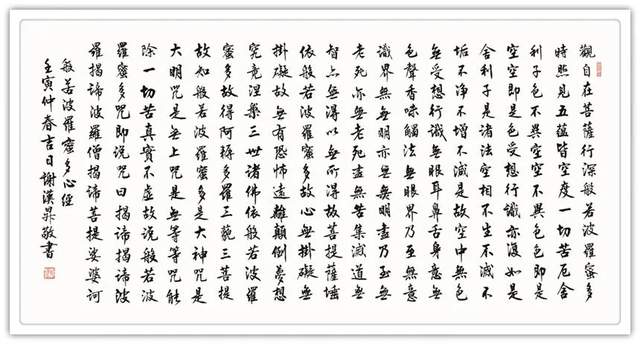 觀自在菩薩行深般若波羅蜜多
時照見五蘊皆空度一切苦厄舍
利子色不異空空不異色色即是
空空即是色受想行識亦復如是
舍利子是諸法空相不生不滅不
垢不淨不增不減是故空中無色
無受想行識無眼耳鼻舌身意無
色聲香味觸法無眼界乃至無意
識界無無明亦無無明盡乃至無
老死亦無老死盡無苦集滅道無
智亦無得以無所得故菩提薩埵
依般若波羅蜜多故心無掛礙無
掛礙故無有恐怖遠離顛倒夢想
究竟涅槃三世諸佛依般若波羅
蜜多故得阿耨多羅三藐三菩提
故知般若波羅蜜多是大神咒是
大明咒是無上咒是無等等咒能
除一切苦真實不虛故說般若波
羅蜜多咒即說咒曰揭諦揭諦波
羅揭諦波羅僧揭諦菩提娑婆訶
般若波羅蜜多心經
壬寅仲春吉日謝漢敬書